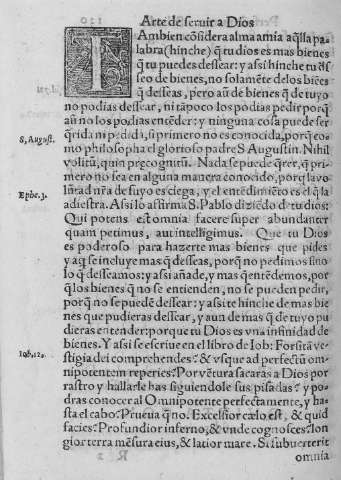 Arte de seruir a Dios
TAmbien cõsidera alma mia aq̃lla pa-
labra (hinche) q̃ tu dios es mas bienes
q̃ tu puedes dessear: y assi hinche tu de
seo de bienes, no solamẽte de los biẽes
q̃ desseas, pero aũ de bienes q̃ de tuyo
no podias dessear, ni tãpoco los podias pedir porq̃
aũ no los podias entẽder: y ninguna cosa puede ser
q̃rida ni pedida, si primero no es conocida, porq̃ co-
S, August.
mo philosopha el glorioso padre S Augustin. Nihil
volitũ, quin precognitũ. Nada se puede q̃rer, q̃ pri-
mero no sea en alguna manera conocido, porq̃ la vo
Ephe. 3.
lũtad nr̃a de suyo es ciega, y el entẽdimiẽto es el q̃ la
adiestra. Assi lo affirma S. Pablo diziẽdo d̃ tu dios:
Qui potens est omnia facere super abundanter
quam petimus, aut intelligimus. Que tu Dios
es poderoso para hazerte mas bienes que pides
y aq̃ se incluye mas q̃ desseas, porq̃ no pedimos sino
lo q̃ desseamos: y assi añade, y mas q̃ entẽdemos, por
q̃ los bienes q̃ no se entienden, no se pueden pedir,
porq̃ no se puedẽ dessear: y assi te hinche de mas bie
nes que pudieras dessear, y aun de mas q̃ de tuyo pu
dieras entender: porque tu Dios es vna infinidad de
bienes. Y assi se escriue en el libro de Iob: Forsitã ve-
Iob, 11.
stigia dei comprehendes? & vsque ad perfectũ om-
nipotentem reperies? Por vẽtura sacaràs a Dios por
rastro y hallarle has siguiendole sus pisadas? y po-
dras conocer al Omnipotente perfectamente, y ha-
sta el cabo? Prueua q̃ no. Excelsior cælo est, & quid
facies? Profundior inferno, & vnde cognosces? lon
gior terra mẽsura eius, & latior mare. Si subuerterit
omnia